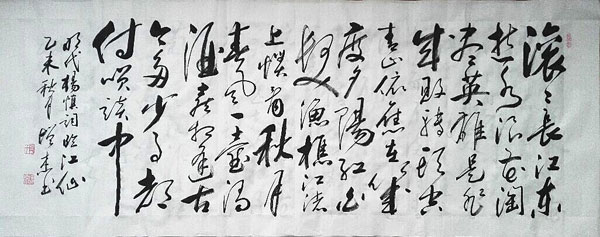 滚滚长江东
逝水浪花淘
尽英雄是非
成败转头空
青山依旧在几
度夕陽红白
发漁樵江渚
上惯看秋月
春风一壶浊
酒喜相逢古
今多少事都
付笑谈中
明代楊慎词临江仙
乙未秋月 书